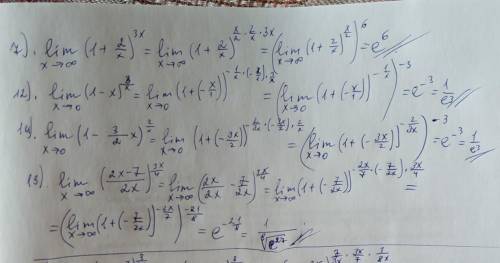 7). lim x→∞ (1+2/x)^3x = lim x→∞ (1+2/x)^x/2·2/x·3x = (lim x→∞ (1+2/x)^x/2)^6 = e^6
12). lim x→0 (1-x)^3/x = lim x→0 (1+(-x/1))^-1/x·(-x/1)·3/x = (lim x→0 (1+(-x/1))^-1/x)^-3 = e^-3 = 1/e^3
14). lim x→0 (1-3/2 x)^2/x = lim x→0 (1+(-3x/2))^-2/3x·(-3x/2)·2/x = (lim x→0 (1+(-3x/2))^-2/3x)^-3 = e^-3 = 1/e^3
13). lim x→∞ (2x-7/2x)^3x/4 = lim x→∞ (2x/2x - 7/2x)^3x/4 = lim x→∞ (1+(-7/2x))^-2x/7·(-7/2x)·3x/4 =
= (lim x→∞ (1+(-7/2x))^-2x/7)^-21/8 = e^-21/8 =